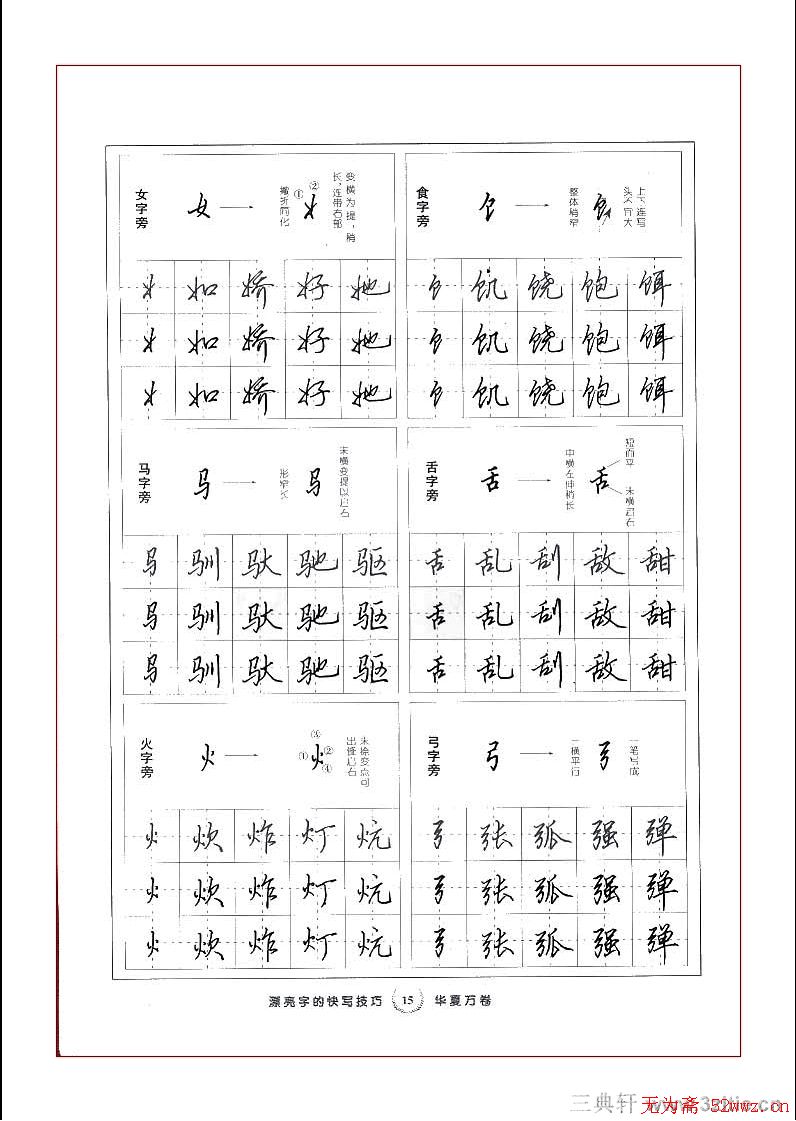 女字旁
女
①
②
撇折简化
变横为提，稍
长，连带右部
如 娇 好 她
如 娇 好 她
如 娇 好 她
食字旁
饣
整体稍窄
上下连写
头不宜大
饣 饥 饶 饱 饵
饣 饥 饶 饱 饵
饣 饥 饶 饱 饵
马字旁
马 马
形窄长
末横变提以启右
马 驯 驮 驰 驱
马 驯 驮 驰 驱
马 驯 驮 驰 驱
舌字旁
舌 舌
中横左伸稍长
短而平
末横启右
舌 乱 刮 敌 甜
舌 乱 刮 敌 甜
舌 乱 刮 敌 甜
火字旁
火 火
①
③
②
④
末捺变点可
出锋启右
火 炊 炸 灯 炕
火 炊 炸 灯 炕
火 炊 炸 灯 炕
弓字旁
弓 弓
二横平行
一笔写成
弓 张 弧 强 弹
弓 张 弧 强 弹
弓 张 弧 强 弹
漂亮字的快写技巧 15 华夏万卷
三典轩
无为斋 52wwz.cn